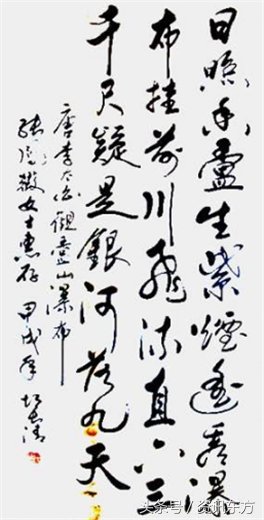 日照香盧生紫煙遙看瀑
布挂前川飛流直下三
千尺疑是銀河落九天
唐李太白觀廬山瀑布
張敬女士惠存 甲戌年
头条号／资讯东方